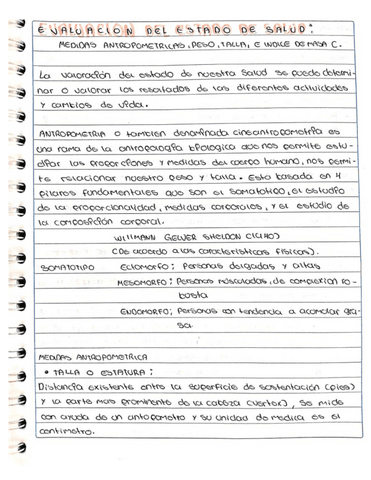 EVALUACION DEL ESTADO DE SALUD:
MEDIDAS ANTROPOMETRICAS, PESO, TALLA, E INDICE DE MASA C.
La valoración del estado de nuestra salud se puede determi-
nar o valorar los resultados de las diferentes actividades
y cambios de vida.
ANTROPOMETRIA o tambien denominada cineantropometria es
una rama de la antropologia biologica que nos permite estu-
diar las proporciones y medidas del cuerpo humano, nos permi-
te relacionar nuestro peso y talla. Esta basada en 4
pilares fundamentales que son el somatotipo, el estudio
de la proporcionalidad, medidas corporales, y el estudio de
la composición corporal.
WILLMANN GELWER SHELDON (1940)
(De acuerdo a las caracteristicas fisicas).
SOMATOTIPO Ectomorfo: Personas delgadas y altas
MESOMORFO: Personas musculadas, de complexion ro-
busta
ENDOMORFO: Personas con tendencia a acomular gra-
sa.
MEDIDAS ANTROPOMETRICA
• TALLA O ESTATURA:
Distancia existente entre la superficie de sustentación (pies)
y la parte mas prominente de la cabeza (vertex), se mide
con ayuda de un antopometro y su unidad de medida es el
centimetro.